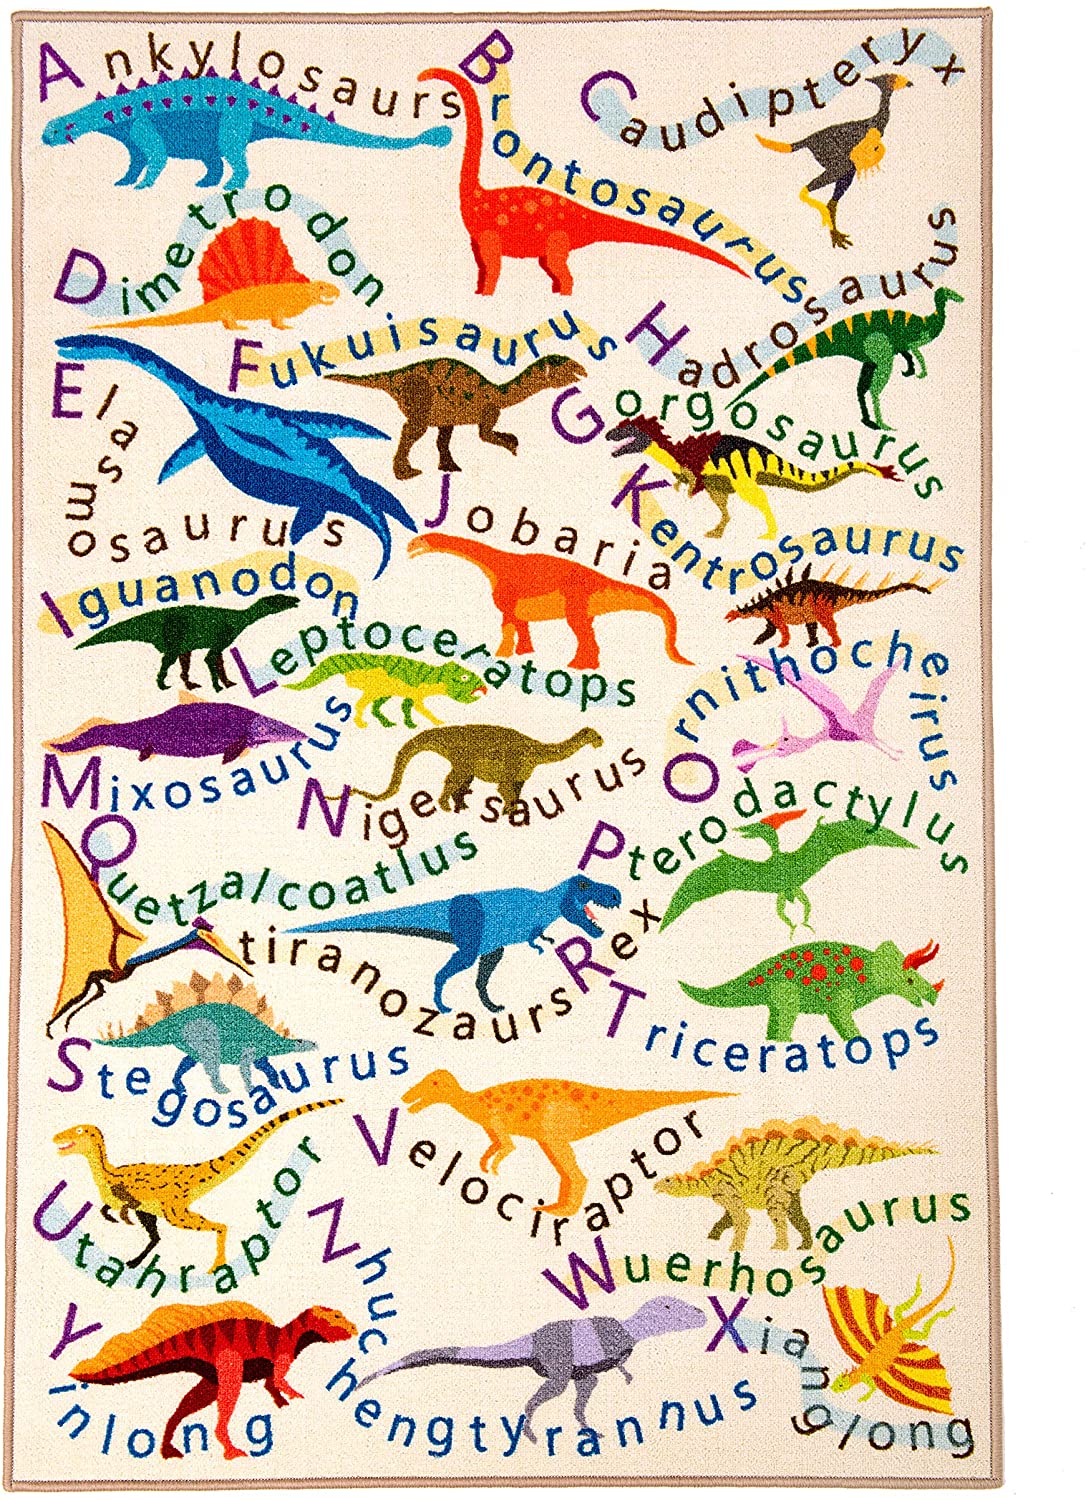 Ankylosaurs
Brontosaurus
Caudipteryx
Dimetrodon
Hadrosaurus
Elasmosaurus
Fukuisaurus
Gorgosaurus
Jobaria
Kentrosaurus
Iguanodon
Leptoceratops
Ornithocheirus
Mixosaurus
Nigersaurus
Pterodactylus
Quetzalcoatlus
tiranozaurs Rex
Triceratops
Stegosaurus
Velociraptor
Utahraptor
Wuerhosaurus
Zhuchengtyrannus
Xianglong
Yinlong